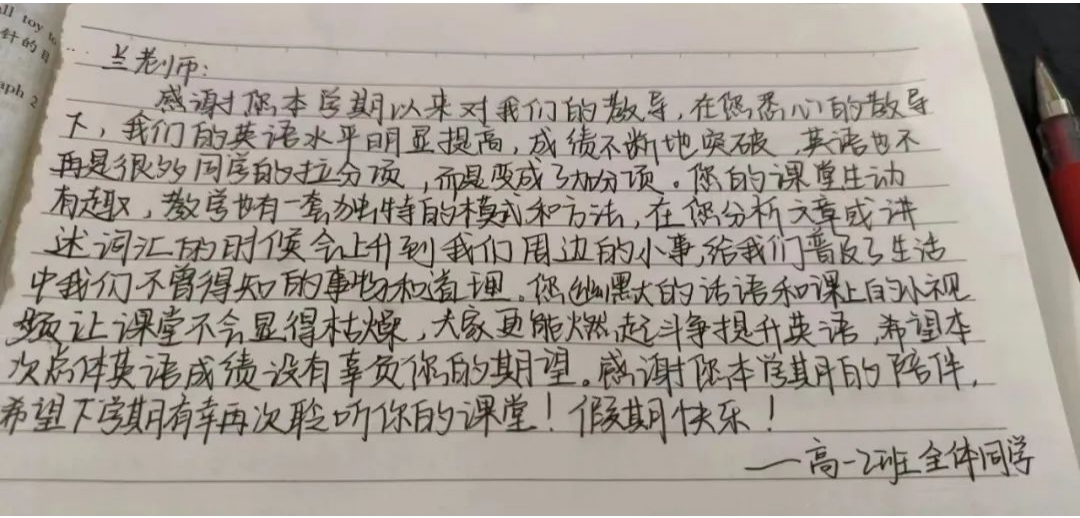 all toy to
针的目
aph 2
兰老师：
感谢您本学期以来对我们的教导，在您悉心的教导
下，我们的英语水平明显提高，成绩不断地突破，英语也不
再是很多同学的拉分项，而是变成了加分项。您的课堂生动
有趣，教学也有一套独特的模式和方法，在您分析文章或讲
述词汇的时候会上升到我们周边的小事，给我们普及了生活
中我们不曾得知的事物和道理。您幽默的话语和课上的小视
频让课堂不会显得枯燥，大家更能燃起斗争提升英语，希望本
次总体英语成绩没有辜负您的期望。感谢您本学期的陪伴，
希望下学期有幸再次聆听你的课堂！假期快乐！
——高一2班全体同学